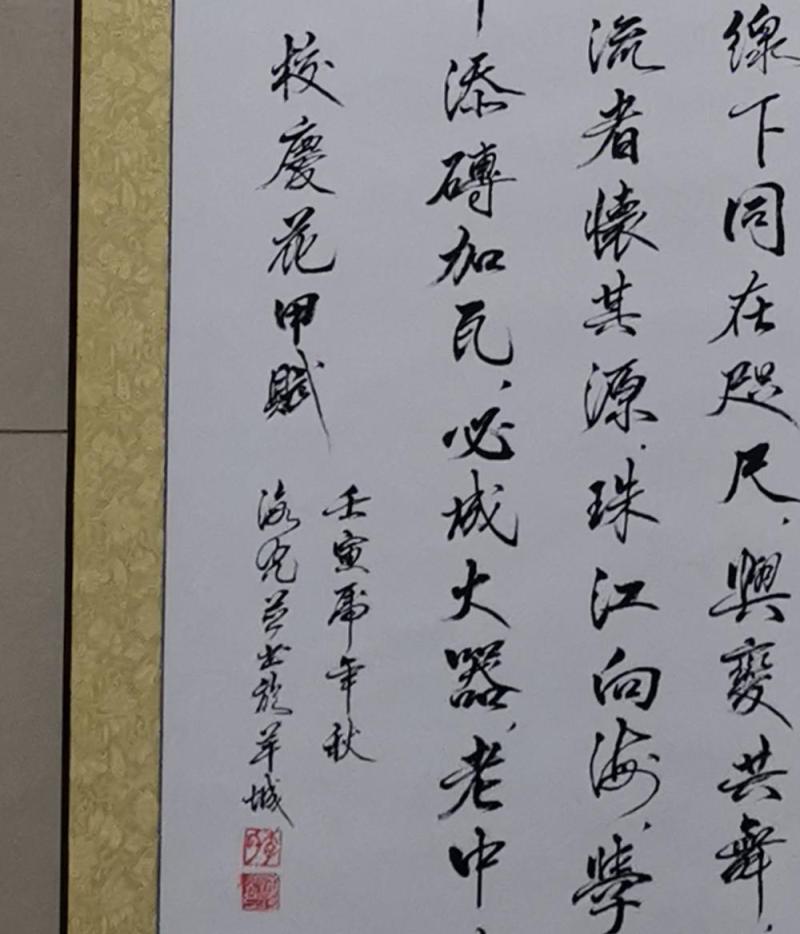 線下同在咫尺，與變共舞，
流者懷其源。珠江向海，學
添磚加瓦，必城大器，老中
校慶花甲賦
壬寅虎年秋
書於羊城